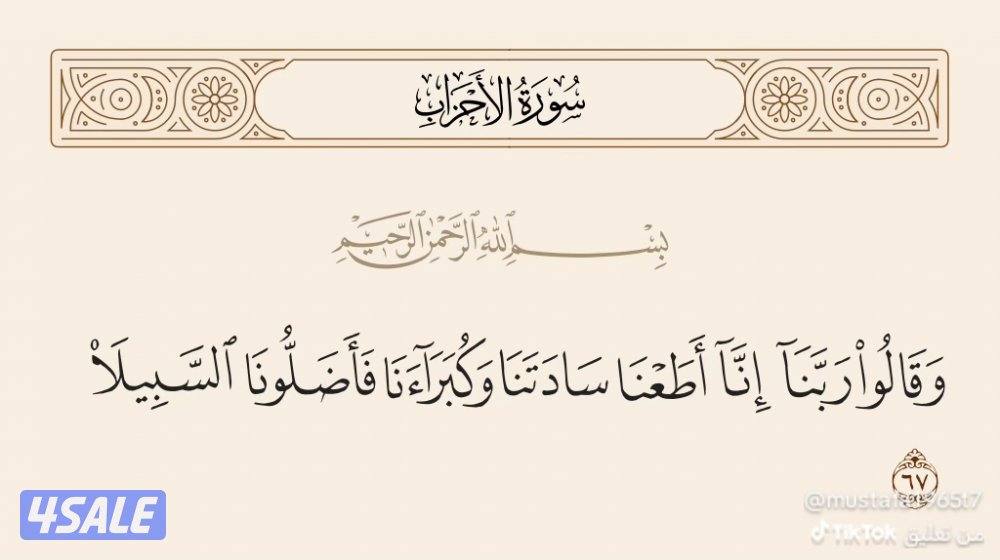 سُورَةُ الأَحْزَابِ
بِسْمِ ٱللَّهِ ٱلرَّحْمَٰنِ ٱلرَّحِيمِ
وَقَالُوا۟ رَبَّنَآ إِنَّآ أَطَعْنَا سَادَتَنَا وَكُبَرَآءَنَا فَأَضَلُّونَا ٱلسَّبِيلَا۠
٦٧
4SALE
TikTok من تعليق